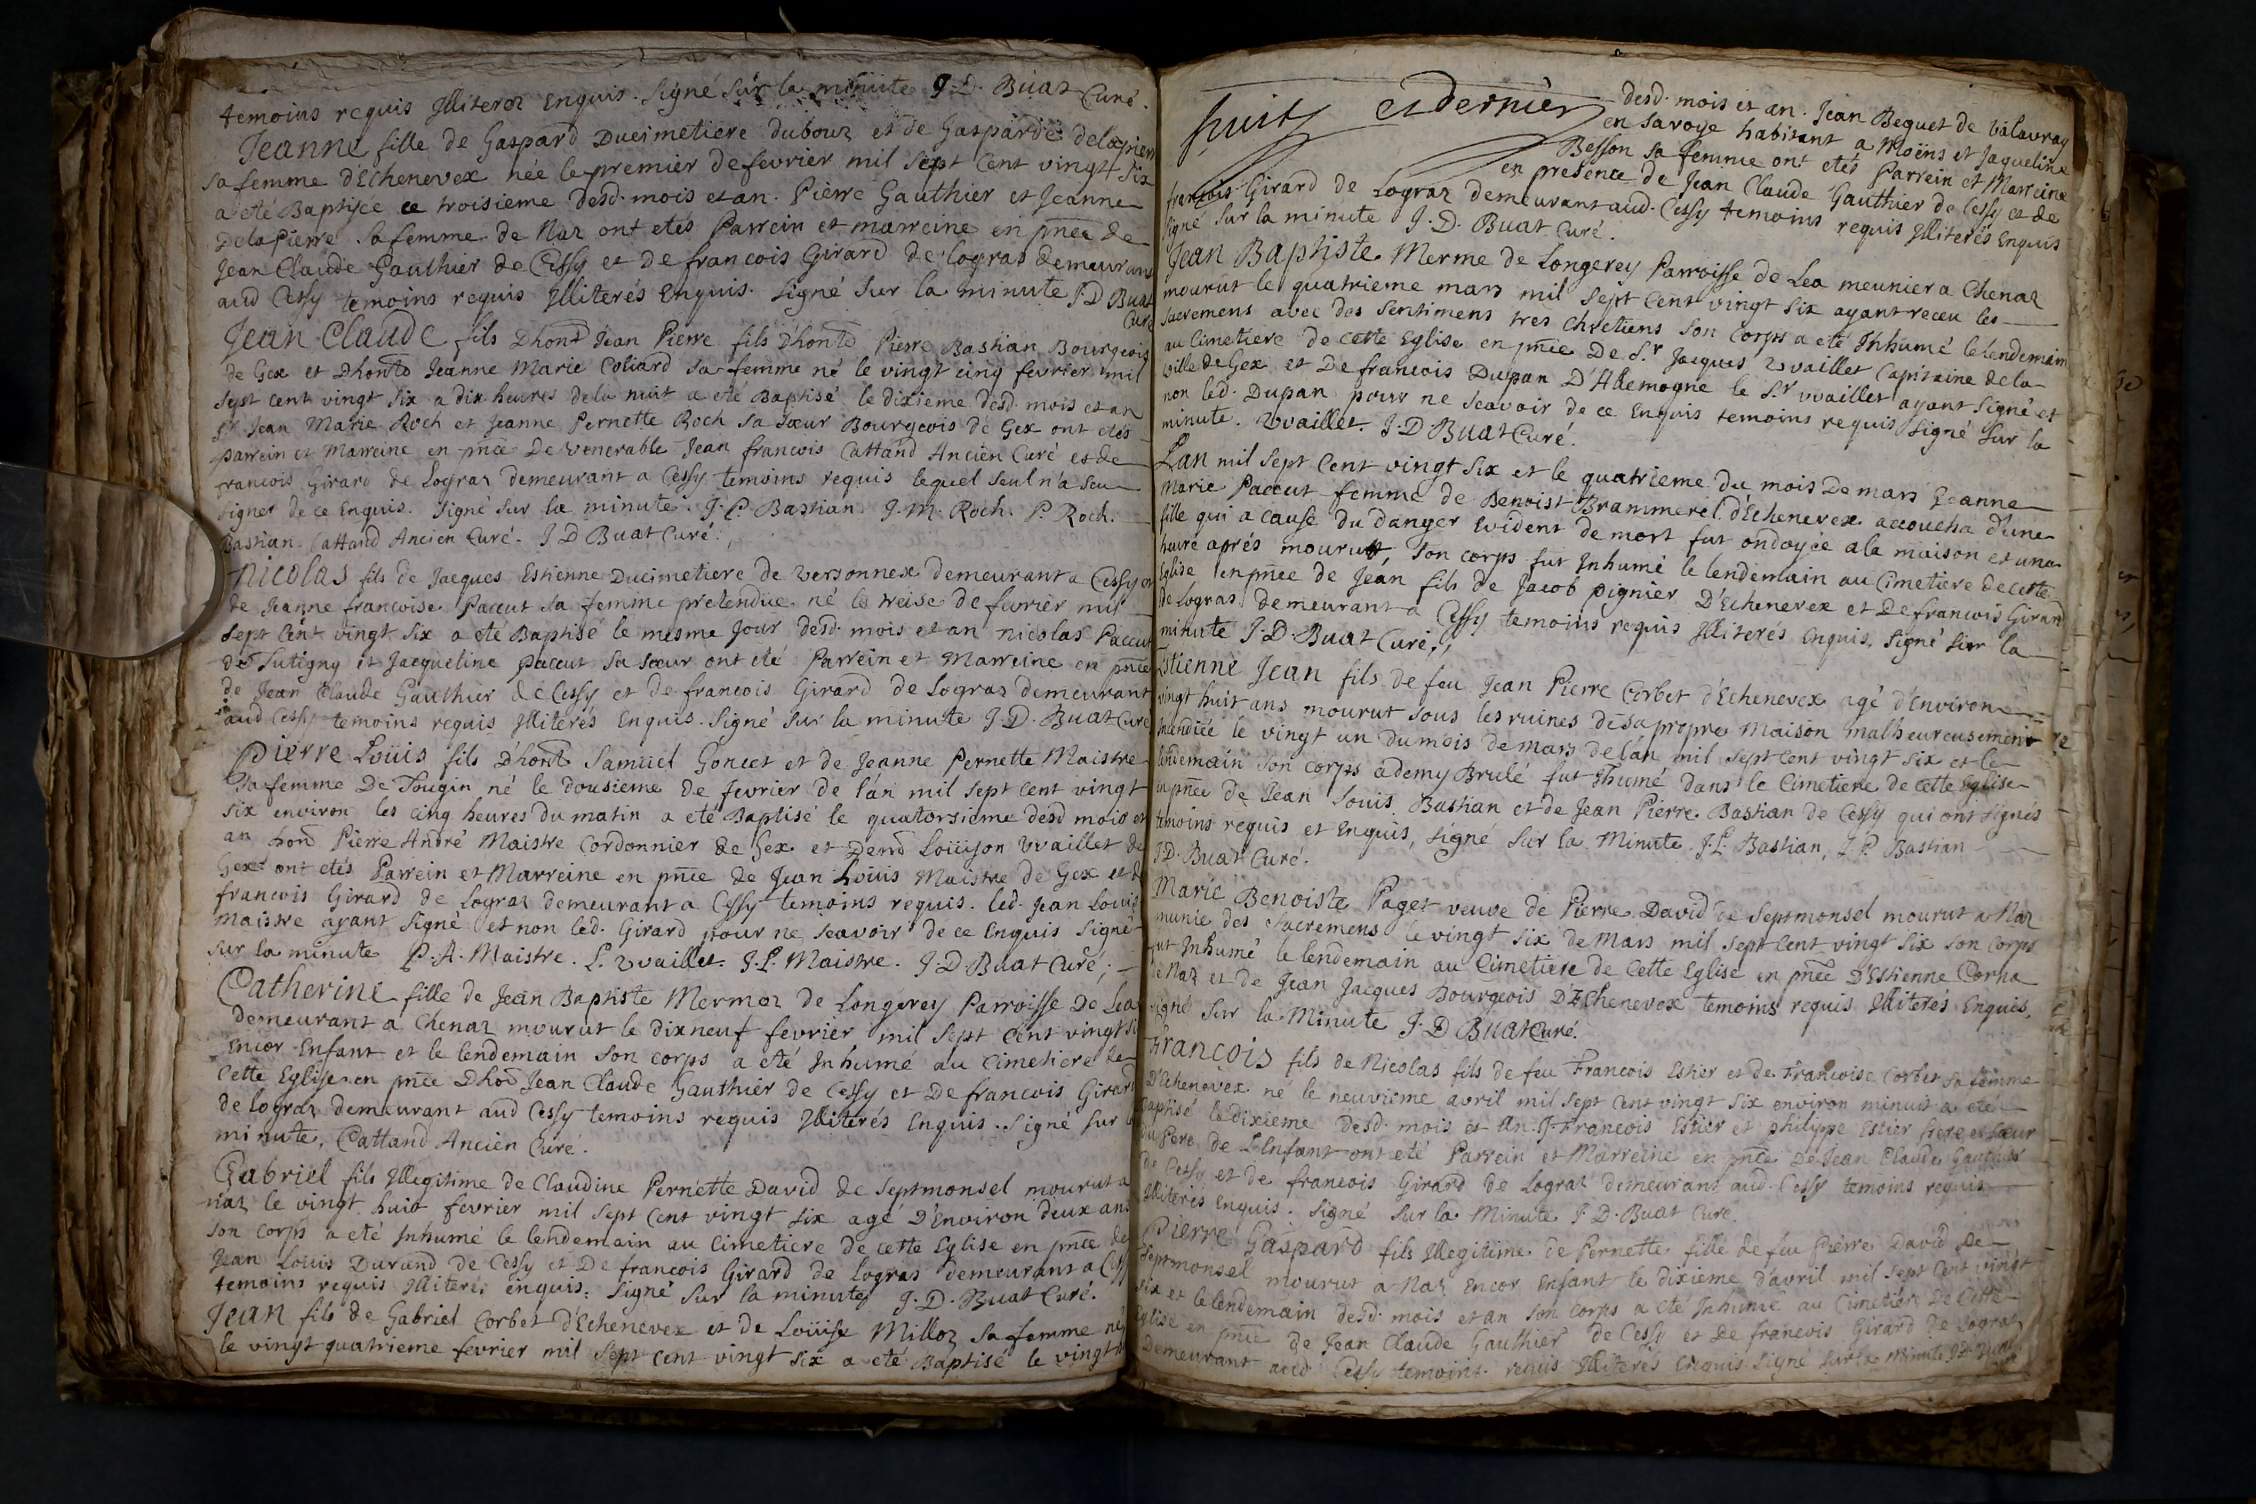 temoins requis Illiterez Enquis. Signé Sur la minute J. D. Buat Curé.
Jeanne fille de Gaspard Ducimetiere dubour et de Gasparde delaprem
sa femme dEchenevex née le premier de fevrier mil sept Cent vingt Six
a eté Baptisée ce troisieme desd. mois et an. Pierre Gauthier et Jeanne
Delapierre sa femme de Naz ont etés Parrein et marreine en pñce de
Jean Claude Gauthier de Cessy et de francois Girard de logras demeurans
aud Cessy temoins requis Illiterés Enquis. Signé Sur la minute J D Buat
Curé
Jean Claude fils Dhont Jean Pierre fils Dhonto Pierre Bastian Bourgeois
de Gex et Dhonto Jeanne Marie Coliard sa femme né le vingt cinq fevrier mil
Sept cent vingt Six a dix heures de la nuit a eté Baptisé le dixieme desd. mois et an
Sr. Jean Marie Roch et Jeanne Pernette Roch sa sœur Bourgeois de Gex ont etés
parrein et Marreine en pñce De venerable Jean francois Cattand Ancien Curé et de
francois Girard de Logras demeurant a Cessy temoins requis lequel Seul n'a Sceu
signer de ce Enquis. Signé Sur la minute. J. P. Bastian. J. M. Roch. P. Roch.
Bastian. Cattand Ancien Curé. J D Buat Curé.
Nicolas fils de Jacques Estienne Ducimetiere de Versonnex demeurant a Cessy et
de Jeanne francoise Paccut sa femme pretendue né le treise de fevrier mil
Sept Cent vingt Six a eté Baptisé le mesme Jour desd. mois et an nicolas Paccut
de Tutigny et Jacqueline paccut Sa sœur ont eté Parrein et Marreine en pñce
de Jean Claude Gauthier de Cessy et de francois Girard de Logras demeurant
aud Cessy temoins requis Illiterés Enquis. Signé Sur la minute J. D. Buat Curé
Pierre Loüis fils Dhont Samuel Goncet et de Jeanne Pernette Maistre
Sa femme De Tougin né le dousieme de fevrier de l'an mil Sept cent vingt
six environ les cinq heures du matin a eté Baptisé le quatorsieme desd mois et
an hon Pierre André Maistre Cordonnier de Gex et Demd Loüison Vvaillet de
Gex ont etés Parrein et Marreine en pñce de Jean Loüis Maistre de Gex et de
francois Girard de Logras demeurant a Cessy temoins requis. led. Jean Louis
maistre ayant Signé et non led. Girard pour ne Scavoir de ce Enquis Signé
Sur la minute P. A. Maistre. L. Vvaillet. J. L. Maistre. J D Buat Curé;
Catherine fille de Jean Baptiste Mermoz de Longerey Parroisse De Lea
demeurant a Chenaz mourut le dix neuf fevrier mil Sept Cent vingt Si
Encor Enfant et le lendemain Son corps a eté Inhumé au Cimetiere de
Cette Eglise en pñce Dhon Jean Claude Gauthier de Cessy et De francois Girard
de logras demeurant aud Cessy temoins requis Illiterés Enquis. Signé Sur la
minute. Cattand Ancien Curé.
Gabriel fils Illegitime de Claudine Pernette David de Septmonsel mourut a
naz le vingt huit fevrier mil sept Cent vingt Six agé D'Environ deux ans
Son corps a eté Inhumé le lendemain au Cimetiere de cette Eglise en pñce de
Jean Louis Durand de Cessy et De francois Girard de logras demeurant a Cessy
temoins requis Illiterés enquis. Signé Sur la minute J. D. Buat Curé.
Jean fils de Gabriel Corbet d'Echenevex et de Loüise Milloz Sa femme né
le vingt quatrieme fevrier mil Sept cent vingt Six a eté Baptisé le vingt
huit et dernier desd. mois et an. Jean Bequet de Valavray
en Savoye habitant a Moëns et Jaqueline
Besson Sa femme ont etés Parrein et Marreine
en presence de Jean Claude Gauthier de Cessy et de
francois Girard de Logras demeurant aud. Cessy temoins requis Illiterés Enquis
Signé Sur la minute J. D. Buat Curé.
Jean Baptiste Merme de Longerey Parroisse de Lea meunier a Chenaz
mourut le quatrieme mars mil Sept Cent vingt Six ayant receu les
Sacremens avec des Sentimens tres chretiens Son Corps a eté Inhumé le lendemain
au Cimetiere de cette Eglise en pñce De S.r Jacques Vvaillet Capitaine de la
ville de Gex et De francois Dupan D'Allemogne le S.r vvaillet ayant Signé et
non led. Dupan pour ne Scavoir de ce Enquis temoins requis Signé Sur la
minute. Vvaillet. J. D Buat Curé.
L'an mil Sept Cent vingt Six et le quatrieme du mois De mars Jeanne
Marie Paccut femme de Benoist Brammerel d'Echenevex accoucha d'une
fille qui a cause du danger Evident de mort fut ondoyée a la maison et une
heure aprés mourut, Son corps fut Inhumé le lendemain au Cimetiere de cette
Eglise en pñce de Jean fils de Jacob pignier D'Echenevex et De francois Girard
de Logras demeurant a Cessy temoins requis Illiterés Enquis. Signé Sur la
minute J. D. Buat Curé.
Estienne Jean fils de feu Jean Pierre Corbet d'Echenevex agé d'Environ
vingt huit ans mourut Sous les ruines de Sa propre Maison malheureusement
Incendiée le vingt un du mois de Mars de l'an mil Sept Cent vingt Six et le
lendemain Son corps a demy Brulé fut Ihumé dans le Cimetiere de cette Eglise
en pñce de Jean Louis Bastian et de Jean Pierre Bastian de Cessy qui ont signés
temoins requis et Enquis, Signé Sur la Minute. J. L. Bastian, J. P. Bastian
J D. Buat Curé.
Marie Benoiste Paget veuve de Pierre David de Septmonsel mourut a Naz
munie des Sacremens le vingt six de Mars mil Sept Cent vingt Six Son Corps
fut Inhumé le lendemain au Cimetiere de Cette Eglise en pñce D'Estienne Corna
de Naz et de Jean Jacques Bourgeois D'Echenevex temoins requis Illiterés Enquis.
Signé Sur la Minute J. D Buat Curé.
François fils de Nicolas fils de feu Francois Estier et de Francoise Corbet Sa femme
D'Echenevex né le neuvieme avril mil Sept Cent vingt Six environ minuit a eté
Baptisé le dixieme desd. mois et An. J. Francois Estier et philippe Estier frere et sœur
du Pere de L'Enfant ont eté Parrein et Marreine en pñce De Jean Claude Gauthier
de Cessy et de francois Girard de Logras demeurant aud. Cessy temoins requis
Illiterés Enquis. Signé Sur la Minute J. D. Buat Curé.
Pierre Gaspard fils Illegitime de Pernette fille de feu Pierre David De
Septmonsel mourut a Naz Encor Enfant le dixieme d'avril mil Sept Cent vingt
Six et le lendemain desd. mois et an Son Corps a eté Inhumé au Cimetiere De Cette
Eglise en pñce de Jean Claude Gauthier de Cessy et De francois Girard De Logras
Demeurant aud Cessy temoins requis Illiterés Enquis. Signé Sur la Minute J. D. Buat